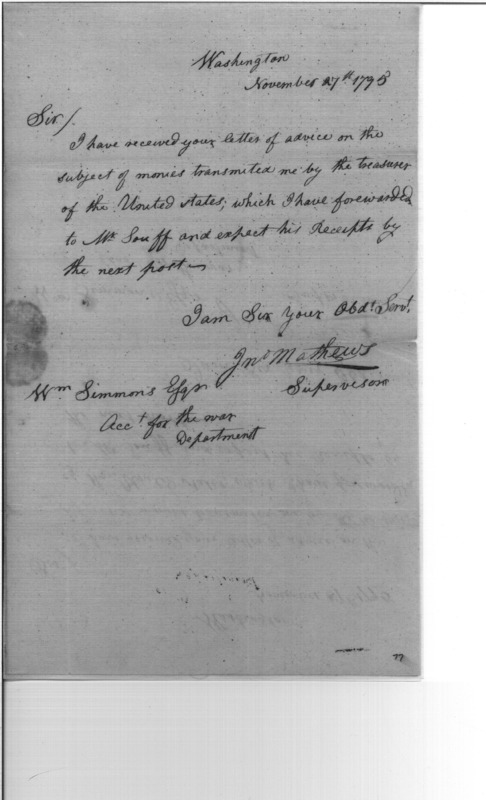 Washington
November 27th 1795
Sir/.
I have received your letter of advice on the
subject of monies transmited me by the treasurer
of the United states; which I have forewarded
to Mr Souff and expect his Receipts by
the next post
I am Sir Your Obdt Servt.
Jno Mathews
Supervisor
Wm Simmons Esqr
Acct for the war
Department